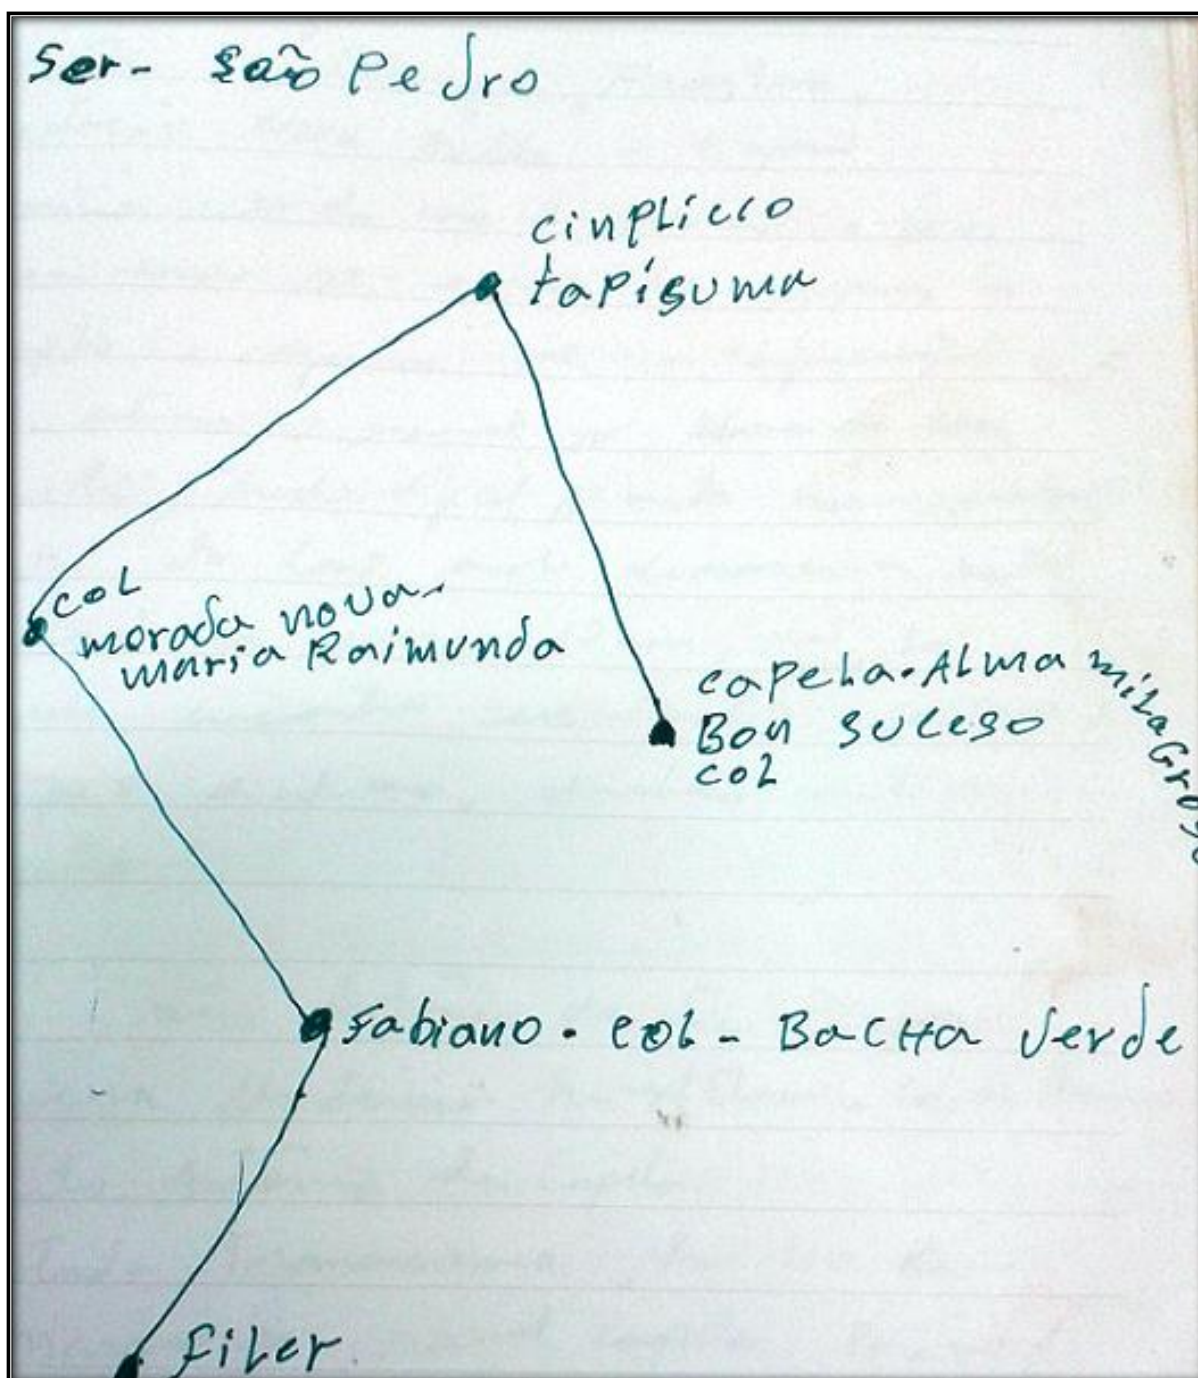 Ser- São Pedro
cinPLicio
taPisuma
coL
morada nova-
maria Raimunda
caPeLa-ALma milaGrosa
Bon suceso
coL
Fabiano. coL - BaCHa Verde
FiLer